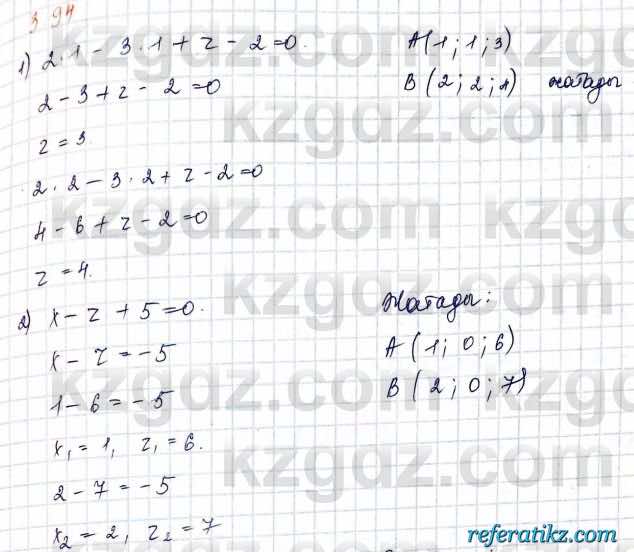 394
1) 2·1 - 3·1 + z - 2 = 0.
A(1; 1; 3)
2 - 3 + z - 2 = 0
B(2; 2; 4) жатады
z = 3
2·2 - 3·2 + z - 2 = 0
4 - 6 + z - 2 = 0
z = 4.
2) x - z + 5 = 0.
Жатады:
x - z = -5
A(1; 0; 6)
1 - 6 = -5
B(2; 0; 7)
x₁ = 1, z₁ = 6.
2 - 7 = -5
x₂ = 2, z₂ = 7
kzgdz.com
referatikz.com